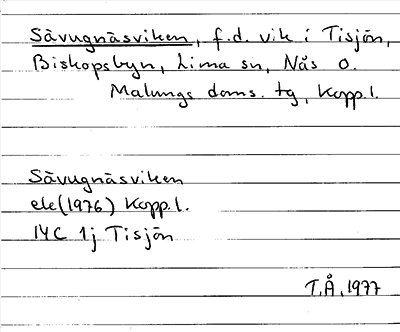 Sävugnäsviken, f.d. vik i Tisjön,
Biskopsbyn, Lima sn, Nås o.
Malungs doms. tg, Kopp.l.
Sävugnäsviken
ek(1976) Kopp.l.
14C 1j Tisjön
T.Å, 1977